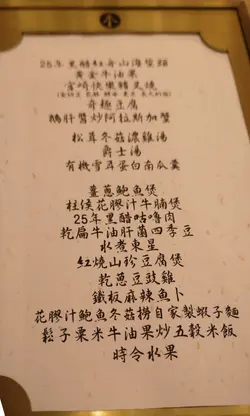 25年黑醋紅舟山海蜇頭
黃金牛油果
宮崎快懶豬叉燒
奇趣豆腐
鵝肝醬炒阿拉斯加蟹
松茸冬菇濃雞湯
爵士湯
有機雪耳蛋白南瓜羹
薑蔥鮑魚煲
柱侯花膠汁牛腩煲
25年黑醋咕嚕肉
乾扁牛油肝菌四季豆
水煮東星
紅燒山珍豆腐煲
乾蔥豆豉雞
鐵板麻辣魚卜
花膠汁鮑魚冬菇撈自家製蝦子麵
鬆子粟米牛油果炒五穀米飯
時令水果